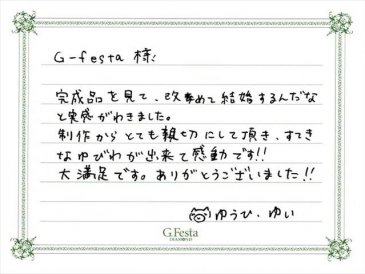 G-festa 様
完成品を見て、改めて結婚するんだな
と実感がわきました。
制作からとても親切にして頂き、すてき
なゆびわが出来て感動です!!
大満足です。ありがとうございました!!
ゆうひ、ゆい
G.Festa
DIAMOND